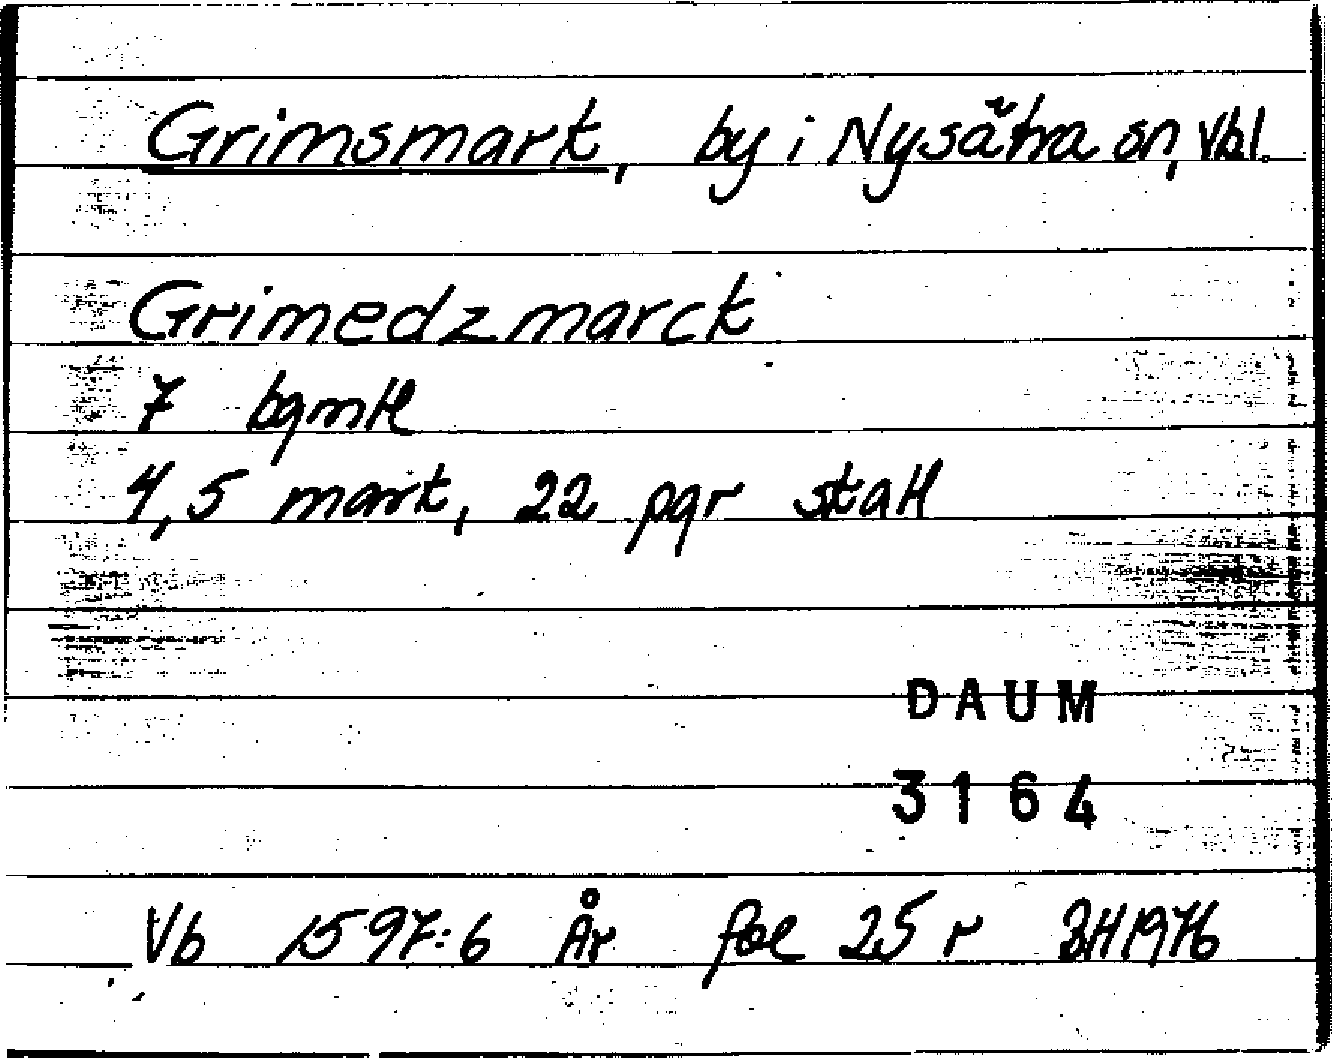 Grimsmark, by i Nysätra sn, Vbl.
Grimedzmarck
7 bgmtl
4,5 mark, 22 pgr skatt
DAUM
3164
Vb 1597:6 År fol 25 r BH 1976